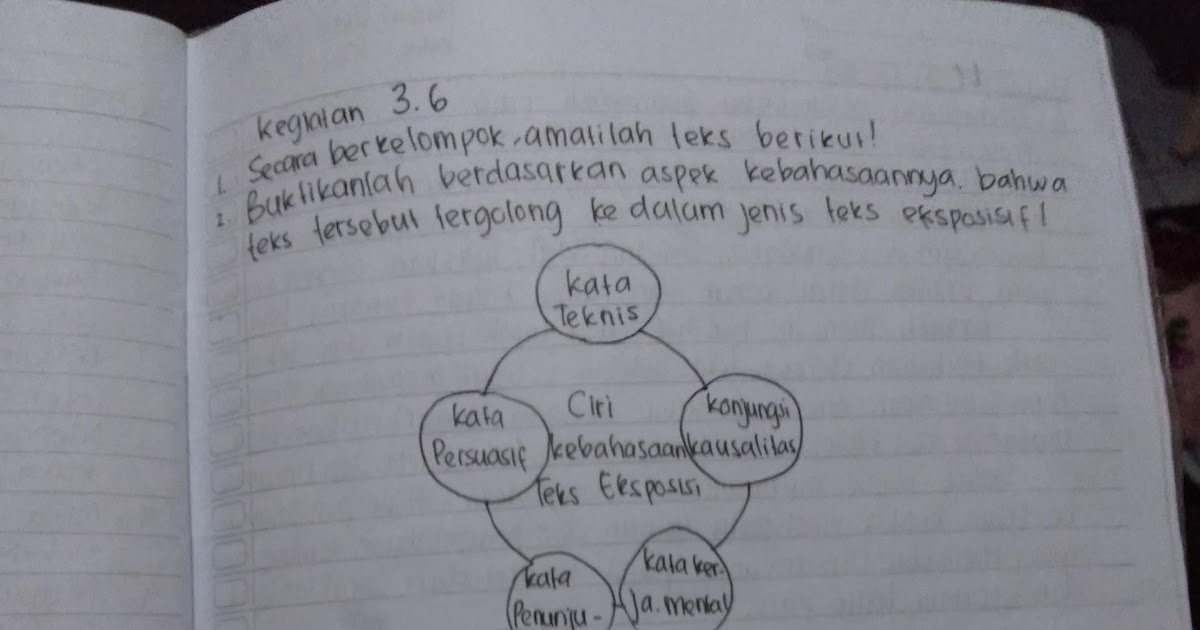 Kegiatan 3.6
1. Secara berkelompok, amatilah teks berikut!
2. Buktikanlah berdasarkan aspek kebahasaannya. bahwa
teks tersebut tergolong ke dalam jenis teks eksposisif!
kata
Teknis
kata
Persuasif
Ciri
kebahasaan
Teks Eksposisi
konjungsi
kausalitas
kata
Penunju-
kata ker-
ja. mental